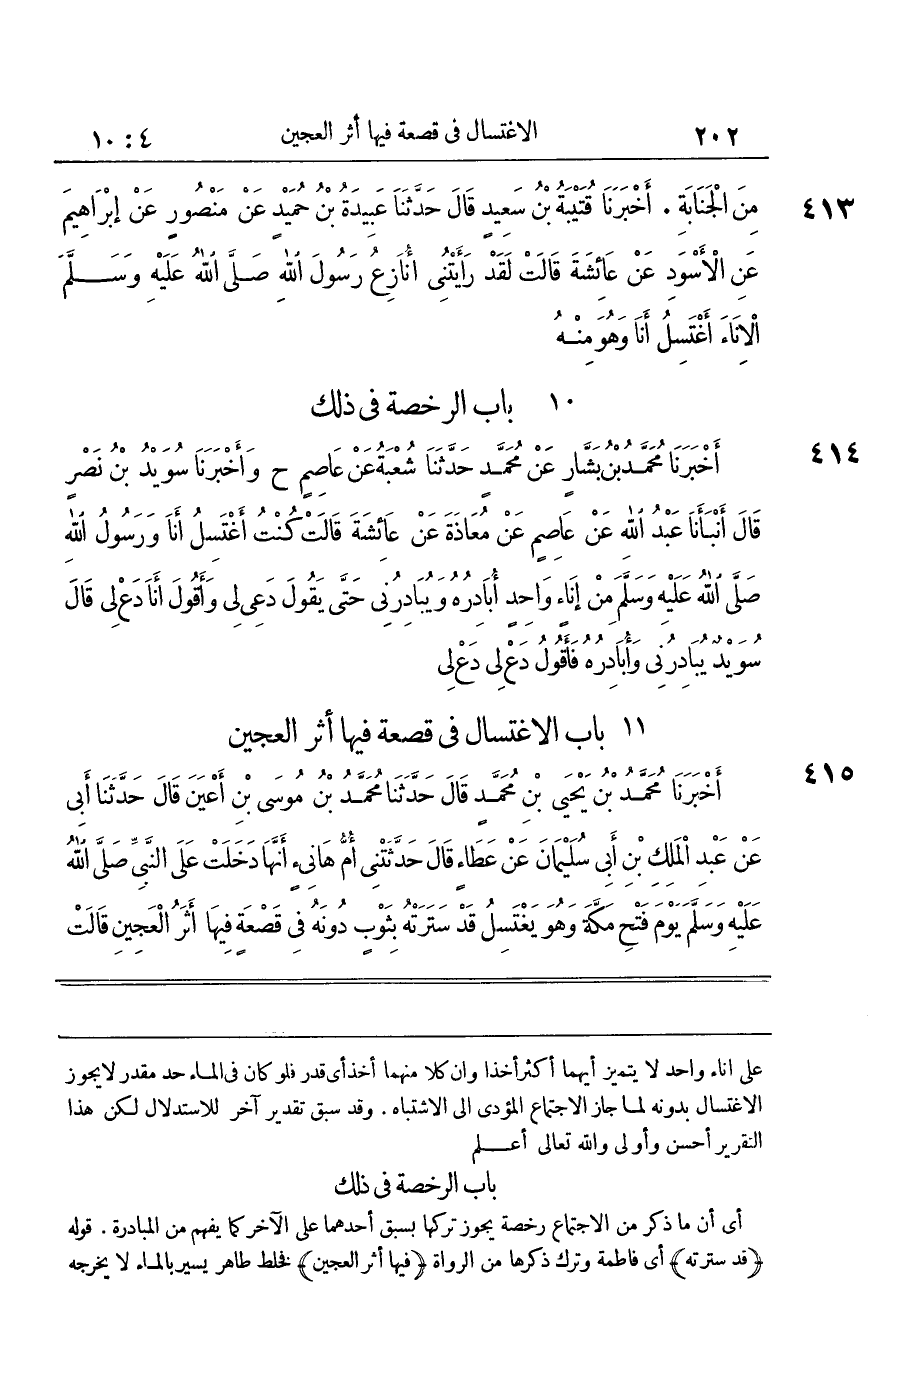 ٢٠٢ الاغتسال فى قصعة فيها أثر العجين ٤ : ١٠
٤١٣ مِنَ الْجَنَابَةِ . أَخْبَرَنَا قُتَيْبَةُ بْنُ سَعِيدٍ قَالَ حَدَّثَنَا عَبِيدَةُ بْنُ حُمَيْدٍ عَنْ مَنْصُورٍ عَنْ إِبْرَاهِيمَ
عَنِ الْأَسْوَدِ عَنْ عَائِشَةَ قَالَتْ لَقَدْ رَأَيْتُنِى أُنَازِعُ رَسُولَ اللهِ صَلَّى اللهُ عَلَيْهِ وَسَلَّمَ
الْإِنَاءَ أَغْتَسِلُ أَنَا وَهُوَ مِنْهُ
١٠ باب الرخصة فى ذلك
٤١٤ أَخْبَرَنَا مُحَمَّدُ بْنُ بَشَّارٍ عَنْ مُحَمَّدٍ حَدَّثَنَا شُعْبَةُ عَنْ عَاصِمٍ ح وَأَخْبَرَنَا سُوَيْدُ بْنُ نَصْرٍ
قَالَ أَنْبَأَنَا عَبْدُ اللهِ عَنْ عَاصِمٍ عَنْ مُعَاذَةَ عَنْ عَائِشَةَ قَالَتْ كُنْتُ أَغْتَسِلُ أَنَا وَرَسُولُ اللهِ
صَلَّى اللهُ عَلَيْهِ وَسَلَّمَ مِنْ إِنَاءٍ وَاحِدٍ أُبَادِرُهُ وَيُبَادِرُنِى حَتَّى يَقُولَ دَعِى لِى وَأَقُولَ أَنَا دَعْ لِى قَالَ
سُوَيْدٌ يُبَادِرُنِى وَأُبَادِرُهُ فَأَقُولُ دَعْ لِى دَعْ لِى
١١ باب الاغتسال فى قصعة فيها أثر العجين
٤١٥ أَخْبَرَنَا مُحَمَّدُ بْنُ يَحْيَى بْنِ مُحَمَّدٍ قَالَ حَدَّثَنَا مُحَمَّدُ بْنُ مُوسَى بْنِ أَعْيَنَ قَالَ حَدَّثَنَا أَبِى
عَنْ عَبْدِ الْمَلِكِ بْنِ أَبِى سُلَيْمَانَ عَنْ عَطَاءٍ قَالَ حَدَّثَتْنِى أُمُّ هَانِىءٍ أَنَّهَا دَخَلَتْ عَلَى النَّبِىِّ صَلَّى اللهُ
عَلَيْهِ وَسَلَّمَ يَوْمَ فَتْحِ مَكَّةَ وَهُوَ يَغْتَسِلُ قَدْ سَتَرَتْهُ بِثَوْبٍ دُونَهُ فِى قَصْعَةٍ فِيهَا أَثَرُ الْعَجِينِ قَالَتْ
على اناء واحد لا يتميز أيهما أكثر أخذا وان كلا منهما أخذ أى قدر فلو كان فى الماء حد مقدر لايجوز
الاغتسال بدونه لما جاز الاجتماع المؤدى الى الاشتباه . وقد سبق تقدير آخر للاستدلال لكن هذا
التقرير أحسن وأولى والله تعالى أعلم
باب الرخصة فى ذلك
أى أن ما ذكر من الاجتماع رخصة يجوز تركها بسبق أحدهما على الآخر كما يفهم من المبادرة . قوله
﴿قد سترته﴾ أى فاطمة وترك ذكرها من الرواة ﴿فيها أثر العجين﴾ فخلط طاهر يسير بالماء لا يخرجه